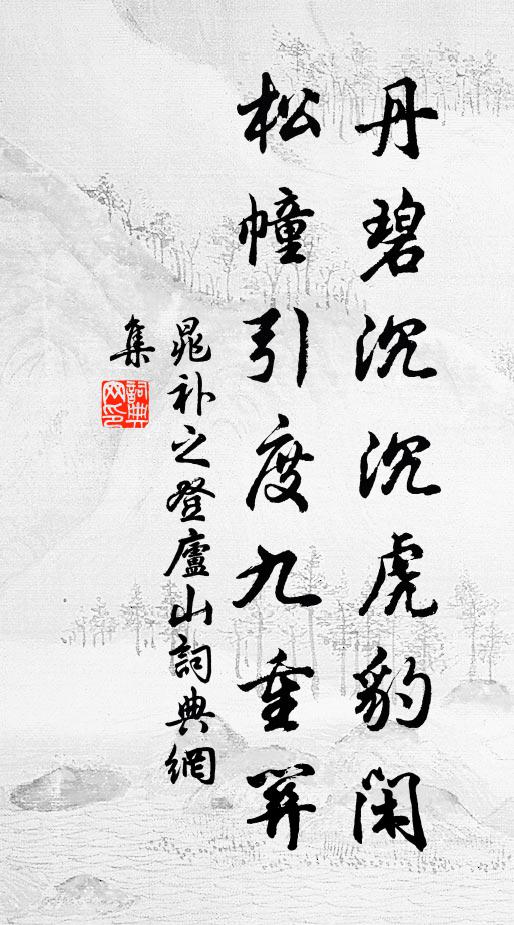 丹碧沉沉虎豹閑
松幢引度九重關
晁补之登廬山詞典網
集
詞典网印